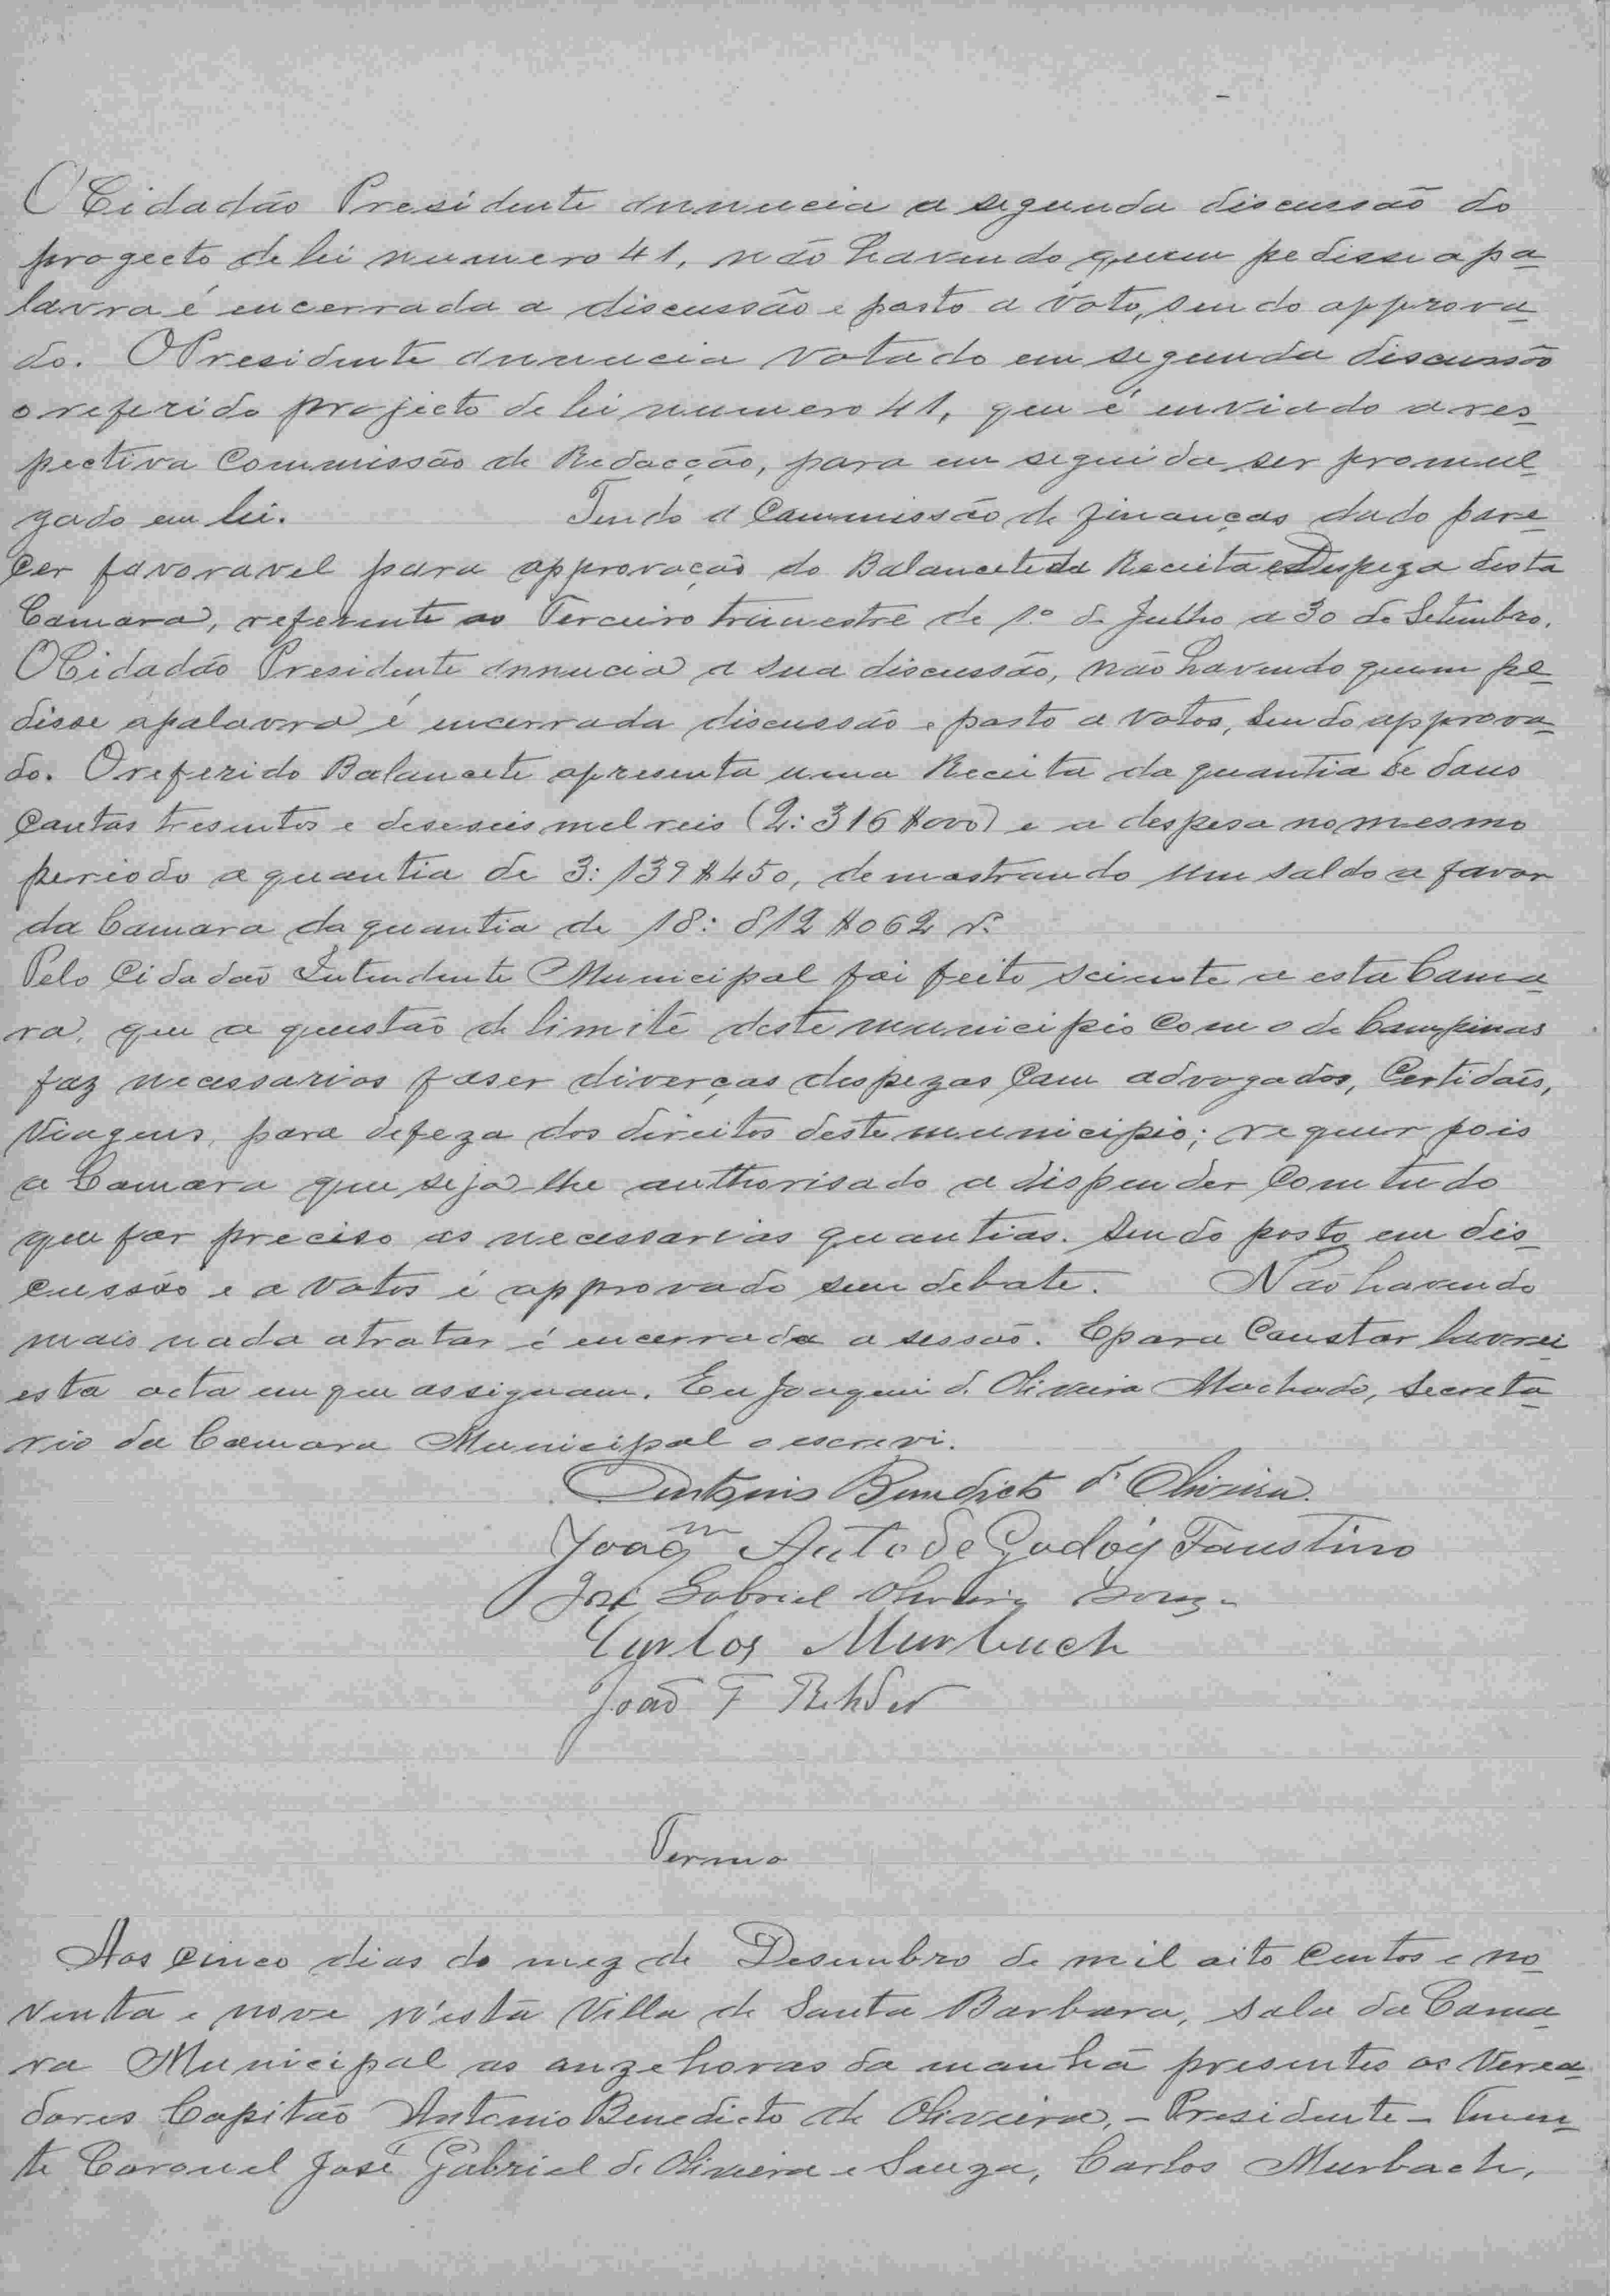 O Cidadão Presidente annuncia a segunda discussão do
progecto de lei numero 41, não havendo quem pedisse a pa-
lavra é encerrada a discussão e posto a voto, sendo approva-
do. O Presidente annuncia votado em segunda discussão
o referido projecto de lei numero 41, que é enviado a res-
pectiva Commissão de Redacção, para em seguida ser promul-
gado em lei. Tendo a Commissão de Finanças dado pare-
cer favoravel para approvação do Balancete da Receita e Despeza desta
Camara, referente ao Terceiro trimestre de 1º de Julho a 30 de Setembro.
O Cidadão Presidente annucia a sua discussão, não havendo quem pe-
disse a palavra é encerrada discussão e posto a votos, sendo approva-
do. O referido Balancete apresenta uma Receita da quantia de dous
Contos tresentos e deseseis mil reis (2:316$000) e a despesa no mesmo
periodo a quantia de 3:139$450, demostrando um saldo a favor
da Camara da quantia de 18:812$062 rs.
Pelo Cidadão Intendente Municipal foi feito sciente a esta Cama-
ra, que a questão de limite deste municipio com o de Campinas
faz necessarios faser diverças despezas com advogados, Certidões,
Viagens, para defeza dos direitos deste municipio; requer pois
a Camara que seja-lhe authorisado a dispender com tudo
que for preciso as necessarias quantias. Sendo posto em dis-
cussão e a votos é approvado sem debate. Não havendo
mais nada a tratar é encerrada a sessão. E para Constar lavrei
esta acta em que assignam. Eu Joaquim de Oliveira Machado, Secreta-
rio da Camara Municipal o escrevi.
Antonio Benedicto de Oliveira.
Joaqm Anto de Godóy Faustino
José Gabriel Oliveira Souza
Carlos Murbach
João F Rehder
Termo
Aos cinco dias do mez de Desembro de mil oito centos e no-
venta e nove n'esta Villa de Santa Barbara, sala da Cama-
ra Municipal as onze horas da manhã presentes os Verea-
dores Capitão Antonio Benedicto de Oliveira, - Presidente - Tenen-
te Coronel José Gabriel de Oliveira e Souza, Carlos Murbach,